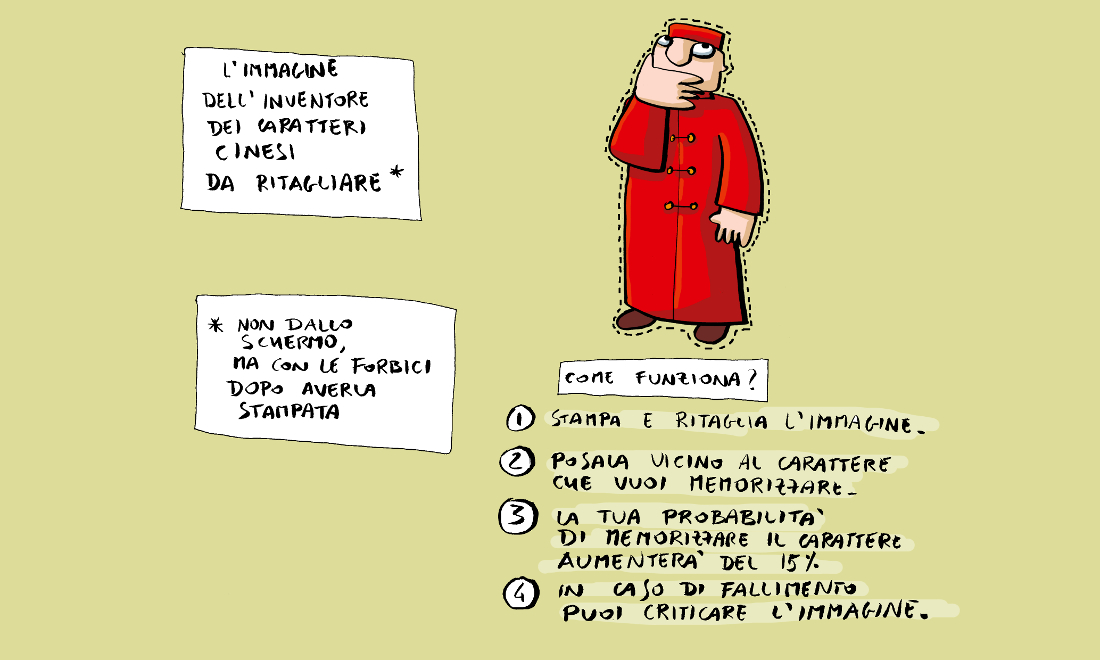 L'IMMAGINE
DELL'INVENTORE
DEI CARATTERI
CINESI
DA RITAGLIARE *
* NON DALLO
SCHERMO,
MA CON LE FORBICI
DOPO AVERLA
STAMPATA
COME FUNZIONA?
1 STAMPA E RITAGLIA L'IMMAGINE.
2 POSALA VICINO AL CARATTERE
CHE VUOI MEMORIZZARE.
3 LA TUA PROBABILITA'
DI MEMORIZZARE IL CARATTERE
AUMENTERA' DEL 15%
4 IN CASO DI FALLIMENTO
PUOI CRITICARE L'IMMAGINE.